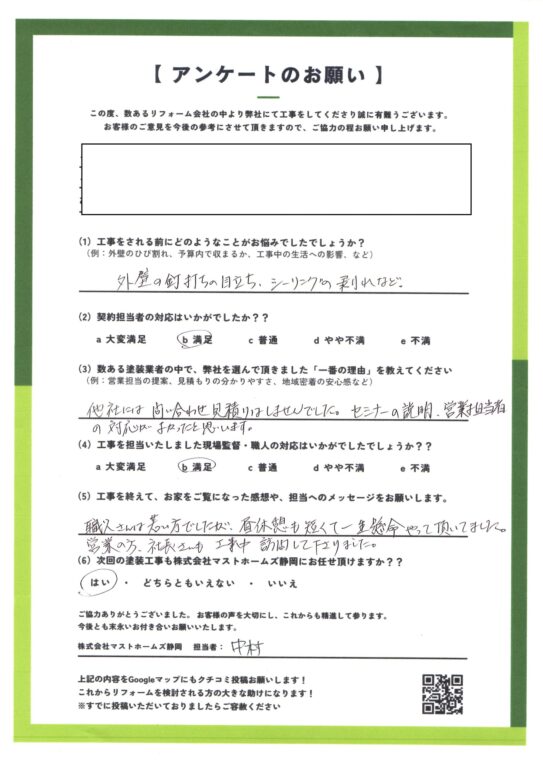 【 アンケートのお願い 】
この度、数あるリフォーム会社の中より弊社にて工事をしてくださり誠に有難うございます。
お客様のご意見を今後の参考にさせて頂きますので、ご協力の程お願い申し上げます。
（1）工事をされる前にどのようなことがお悩みでしたでしょうか？
（例：外壁のひび割れ、予算内で収まるか、工事中の生活への影響、など）
外壁の釘打ちの目立ち、シーリングの剥れなど。
（2）契約担当者の対応はいかがでしたか？？
a 大変満足 b 満足 c 普通 d やや不満 e 不満
（3）数ある塗装業者の中で、弊社を選んで頂きました「一番の理由」を教えてください
（例：営業担当の提案、見積もりの分かりやすさ、地域密着の安心感など）
他社には問い合わせ見積りはしませんでした。セミナーの説明、営業担当者
の対応がよかったと思います。
（4）工事を担当いたしました現場監督・職人の対応はいかがでしたでしょうか？？
a 大変満足 b 満足 c 普通 d やや不満 e 不満
（5）工事を終えて、お家をご覧になった感想や、担当へのメッセージをお願いします。
職人さんは若い方でしたが、昼休憩も短くて一生懸命やって頂いてました。
営業の方、社長さんも工事中訪問して下さりました。
（6）次回の塗装工事も株式会社マストホームズ静岡にお任せ頂けますか？？
はい ・ どちらともいえない ・ いいえ
ご協力ありがとうございました。お客様の声を大切にし、これからも精進して参ります。
今後とも末永いお付き合いお願いいたします。
株式会社マストホームズ静岡 担当者：中村
上記の内容をGoogleマップにもクチコミ投稿お願いします！
これからリフォームを検討される方の大きな助けになります！
※すでに投稿いただいておりましたらご容赦ください